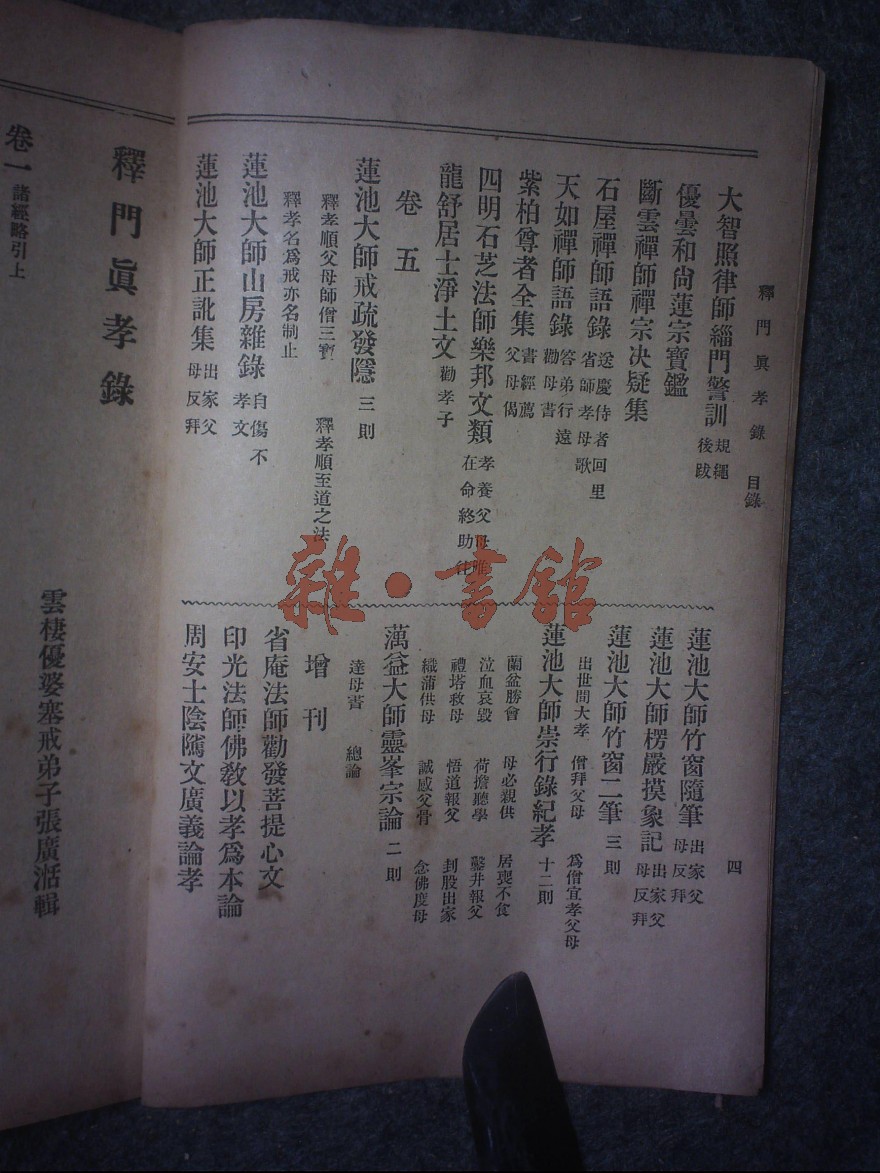 釋門眞孝錄 目錄
四
大智照律師緇門警訓 規繩後跋
優曇和尚蓮宗寶鑑
斷雲禪師禪宗決疑集
石屋禪師語錄 送慶侍者回里省師孝母歌
天如禪師語錄 答弟行遠勸母書
紫柏尊者全集 書經薦父母偈
四明石芝法師樂邦文類 孝養父母唯在命終助往
龍舒居士淨土文 勸孝子
卷五
蓮池大師戒疏發隱 三則
釋孝順父母師僧三寶 釋孝順至道之法
釋孝名爲戒亦名制止
蓮池大師山房雜錄 自傷不孝文
蓮池大師正訛集 出家父母反拜
蓮池大師竹窗隨筆 出家父母反拜
蓮池大師楞嚴摸象記 出家父母反拜
蓮池大師竹窗二筆 三則
出世間大孝 僧拜父母 爲僧宜孝父母
蓮池大師崇行錄紀孝 十二則
蘭盆勝會 母必親供 居喪不食
泣血哀毀 荷擔聽學 鑿井報父
禮塔救母 悟道報父 刲股出家
織蒲供母 誠感父骨 念佛度母
蕅益大師靈峯宗論 二則
達母書 總論
增刊
省庵法師勸發菩提心文
印光法師佛敎以孝爲本論
周安士陰隲文廣義論孝
釋門眞孝錄
雲棲優婆塞戒弟子張廣湉輯
卷一 諸經略引上
雜·書館